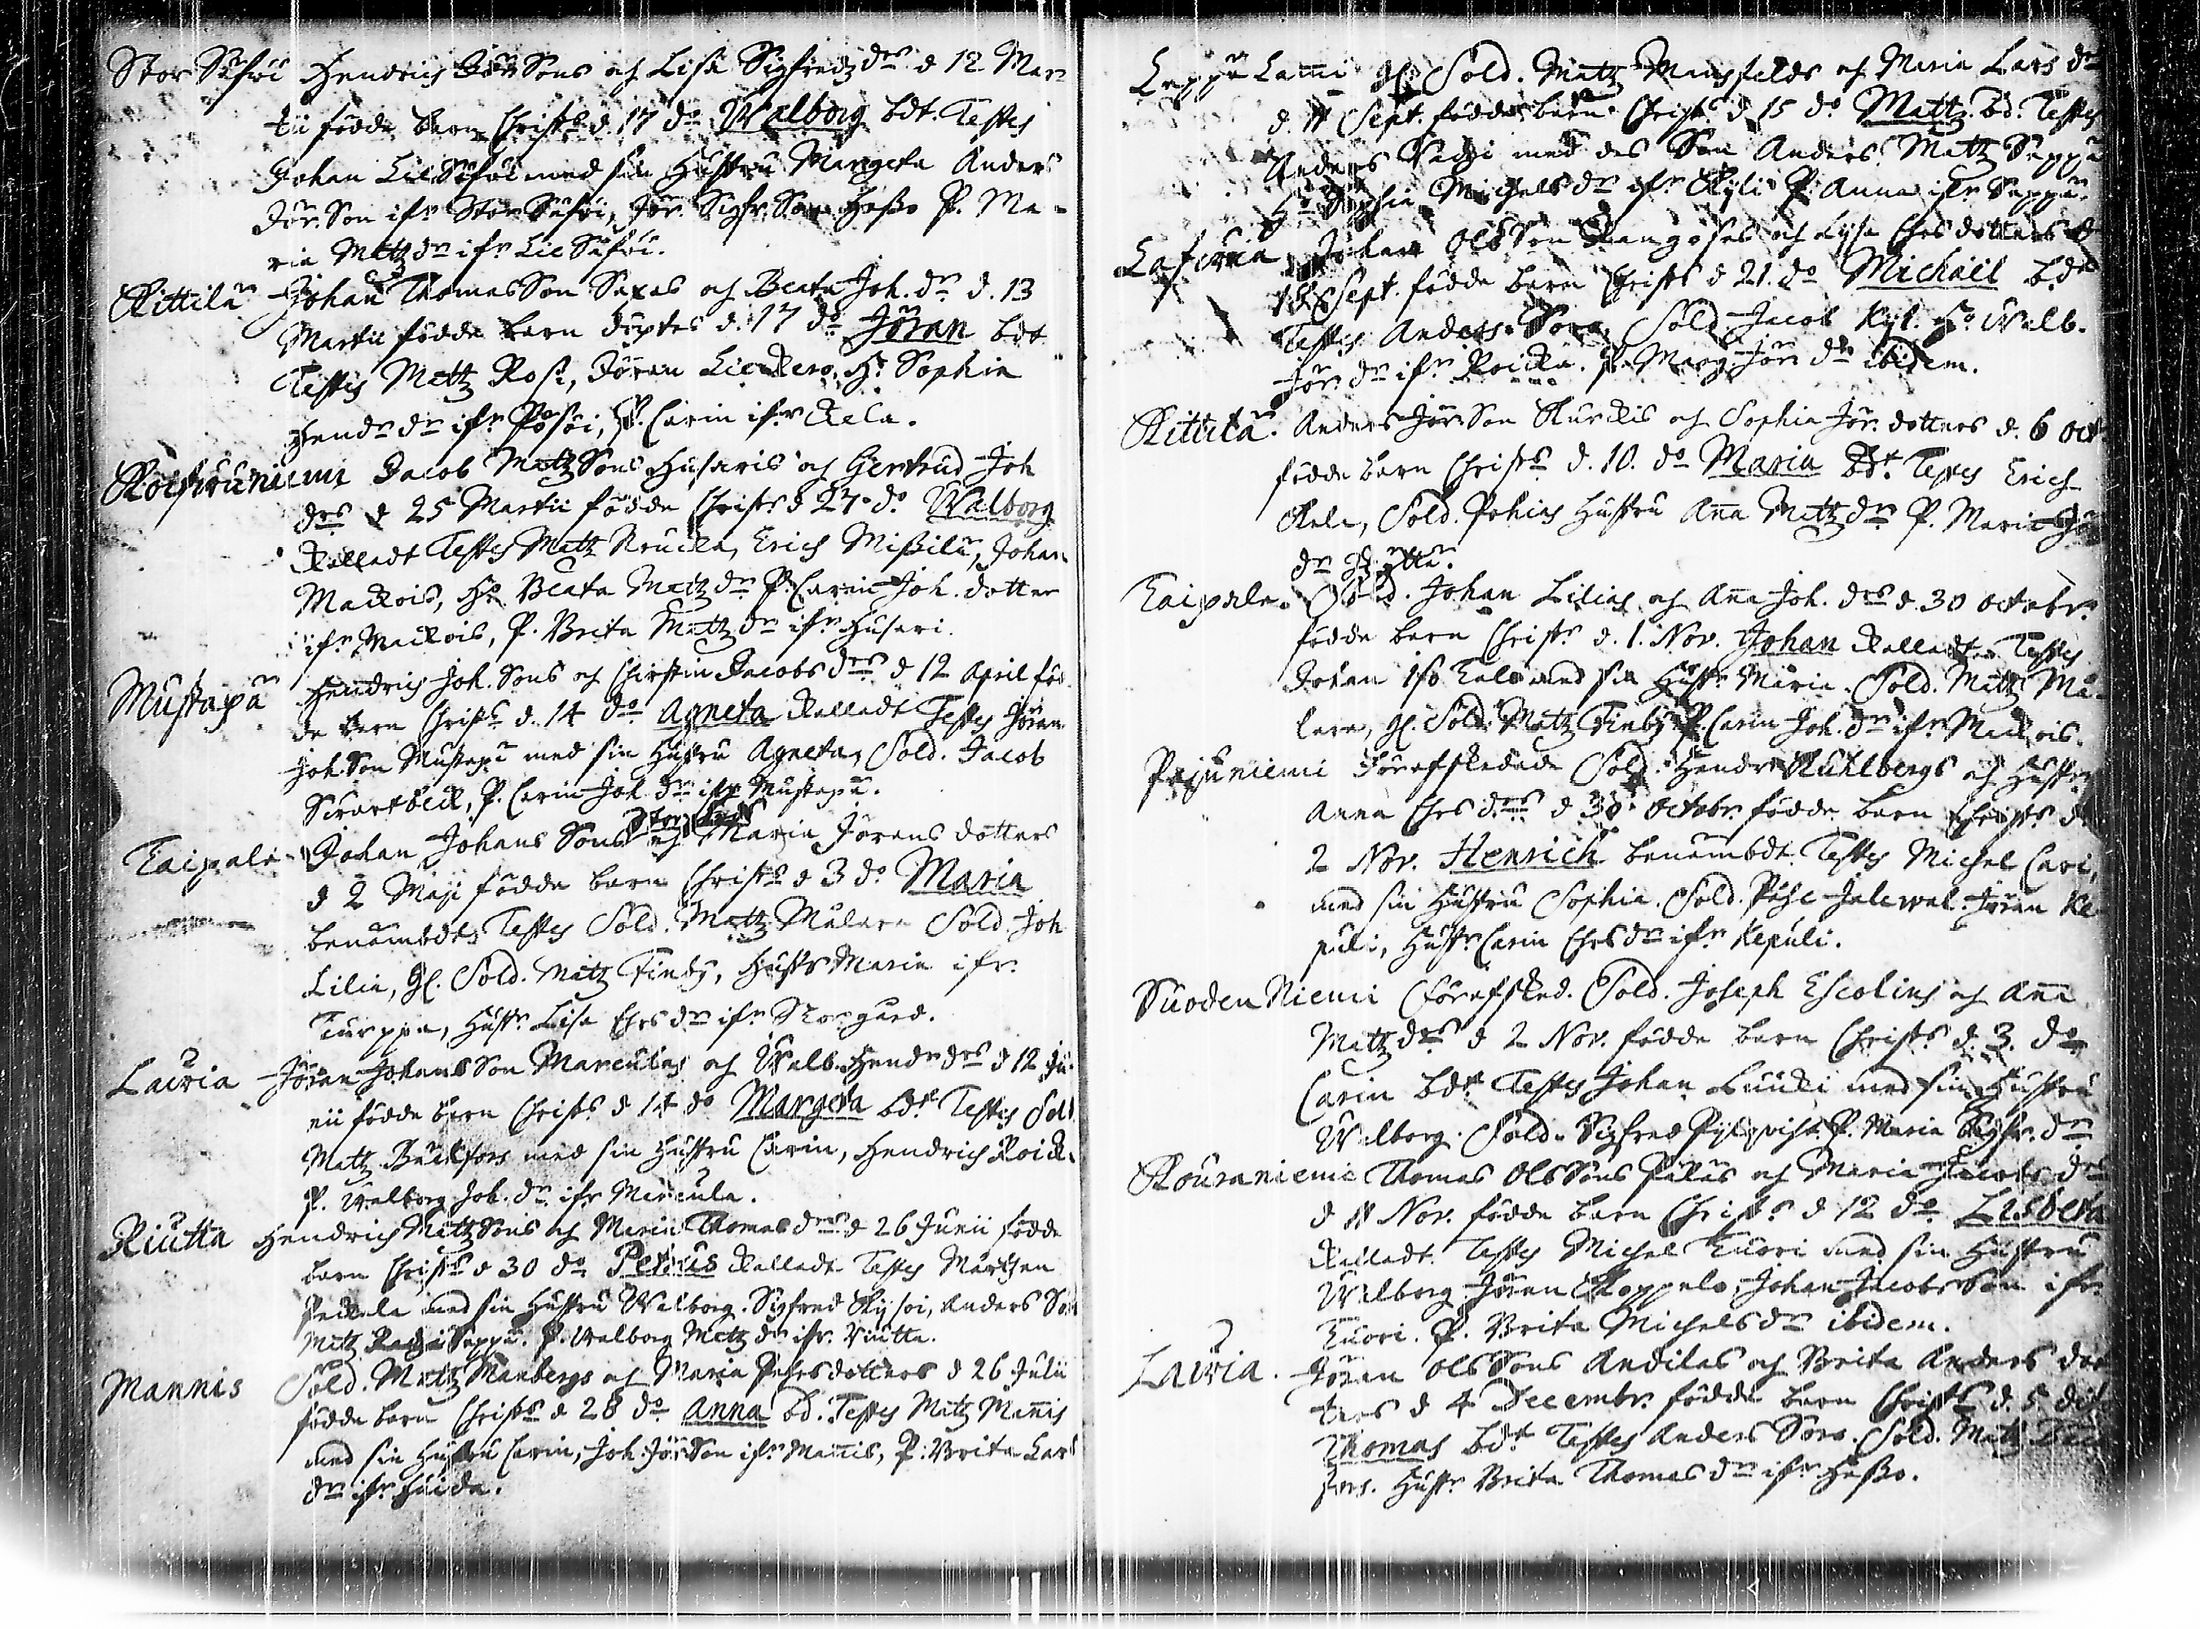 Stor Säsöi Hendrich Jör Sons och Lisa Sigfredz drs d 12 Mar
tii födde barn Christs d. 17 do Walborg bdt. Testes
Johan Lill Säsöi med sin Hustru Margeta Anders
Jör. Son ifr Stor Säsöi, Jör. Sigfr. Son Hasso P. Ma-
ria Matz dr ifr Lill Säsöi.
Kittilä Johan Thomas Son Saxas och Beata Joh. drs d. 13
Martii födde barn döptes d. 17 do Jöran bdt
Testes Matz Rosi, Jöran Liekkero, H. Sophia
Hendr dr ifr Påsöi, P. Carin ifr Kela.
Koifuuniemi Jacob Matz Sons Husaris och Gertrud Joh
drs d 25 Martii födde Christs d 27 do Walborg
kalladt Testes Matz Krucka, Erich Missilä, Johan
Mackois, Ho Beata Matz dr P. Carin Joh. dotter
ifr Mackois, P. Brita Matz dr ifr Husari.
Mustapä Hendrich Joh. Sons och Christin Jacobs drs d 12 April föd
de barn Christs d. 14 do Agneta kalladt Testes Jöran
Joh. Son Mustapä med sin Hustru Agneta, Sold. Jacob
Swartbeck, P. Carin Joh. dr ifr Mustapä.
Taipale Johan Johans Sons och Maria Jörans dotters
d 2 Maji födde barn Christs d 3 do Maria
benämbdt, Testes Sold. Matz Målare Sold. Joh
Lilia, Gl. Sold. Matz Finby, Hustr Maria ifr.
Turppa, Hustr Lisa Ehrs dr ifr Storgård.
Lauria Jöran Johans Son Marculas och Walb. Hendr drs d 12 Ju
nii födde barn Christs d 14 do Margeta bdt Testes Sold
Matz Backfors med sin Hustru Carin, Hendrich Roick.
P. Walborg Joh. dr ifr Marcula.
Kiutta Hendrich Matz Sons och Maria Thomas drs d 26 Junii födde
barn Christs d 30 do Petrus kalladt Testes Mårthen
Peckala med sin Hustru Walborg. Sigfred Kysöi, Anders So
Matz Seppä. P. Walborg Matz dr ifr. Kiutta.
Mannis Sold. Matz Manbergs och Maria Pehrs dotters d 26 Julii
födde barn Christs d 28 do Anna bd. Testes Matz Mannis
med sin Hustru Carin, Joh. Jör Son ifr Mannis, P. Brita Lars
dr ifr Huida.
Leppä Lammi Gl. Sold. Matz Mansfelds och Maria Lars drs
d. 11 Sept. födde barn Christs d 15 do Matz bd. Testes
Anders Kackji med des Son Anders. Matz Seppä
Ho Sophia Michels dr ifr Kyli P. Anna ifr Seppä.
Lafwia Johan Ols Son Kangoses och Lisa Ehrs dotters d
18 Sept. födde barn Christs d 21. do Michaël bdt
Testes Anders Soro, Sold Jacob Kyl. Ho Walb.
Jör. dr ifr Roicka. P. Marg. Jör. dr ibidem.
Kittilä. Anders Jör Son Kurckis och Sophia Jör. dotters d. 6 Oct
födde barn Christs d. 10. do Maria bdt. Testes Erich
Kela, Sold. Pohins Hustru Anna Matz dr P. Maria Jö
dr Hyttä.
Taipale. Sold. Johan Lilias och Anna Joh. drs d 30 Octobr.
födde barn Christs d. 1. Nov. Johan kalladt. Testes
Johan Iso Talo med sin Hustr Maria. Sold. Matz Må-
lare, Gl. Sold. Matz Finby P. Carin Joh. dr ifr Mackois.
Pajuniemi Förafskedade Sold. Hendr Kuhlbergs och Hustr
Anna Ehrs drs d 30 Octobr. födde barn Christs d
2 Nov. Henrich benämbdt. Testes Michel Cari,
med sin Hustru Sophia. Sold. Påhl Jalewal. Jöran Ke
puli, Hustr Carin Ehrs dr ifr Kepuli.
Suoden Niemi Förafsked. Sold. Joseph Escolins och Anna
Matz drs d 2 Nov. födde barn Christs d. 3. do
Carin bdt Testes Johan Luucki med sin Hustru
Walborg. Sold. Sigfred Pylqvist. P. Maria Sigfr. dr
Kouraniemi Thomas Ols Sons Pälas och Maria Jacobs drs
d 11 Nov. födde barn Christs d 12 do Lisbeta
kalladt. Testes Michel Tuori med sin Hustru
Walborg Jöran Koppelo, Johan Jacobs Son ifr
Tuori. P. Brita Michels dr ibidem.
Lauria. Jöran Ols Sons Andilas och Brita Anders dot
ters d 4 Decembr. födde barn Christs d. 5 dito
Thomas bdt Testes Anders Soro. Sold. Matz
fors. Hustr Brita Thomas dr ifr Hasso.